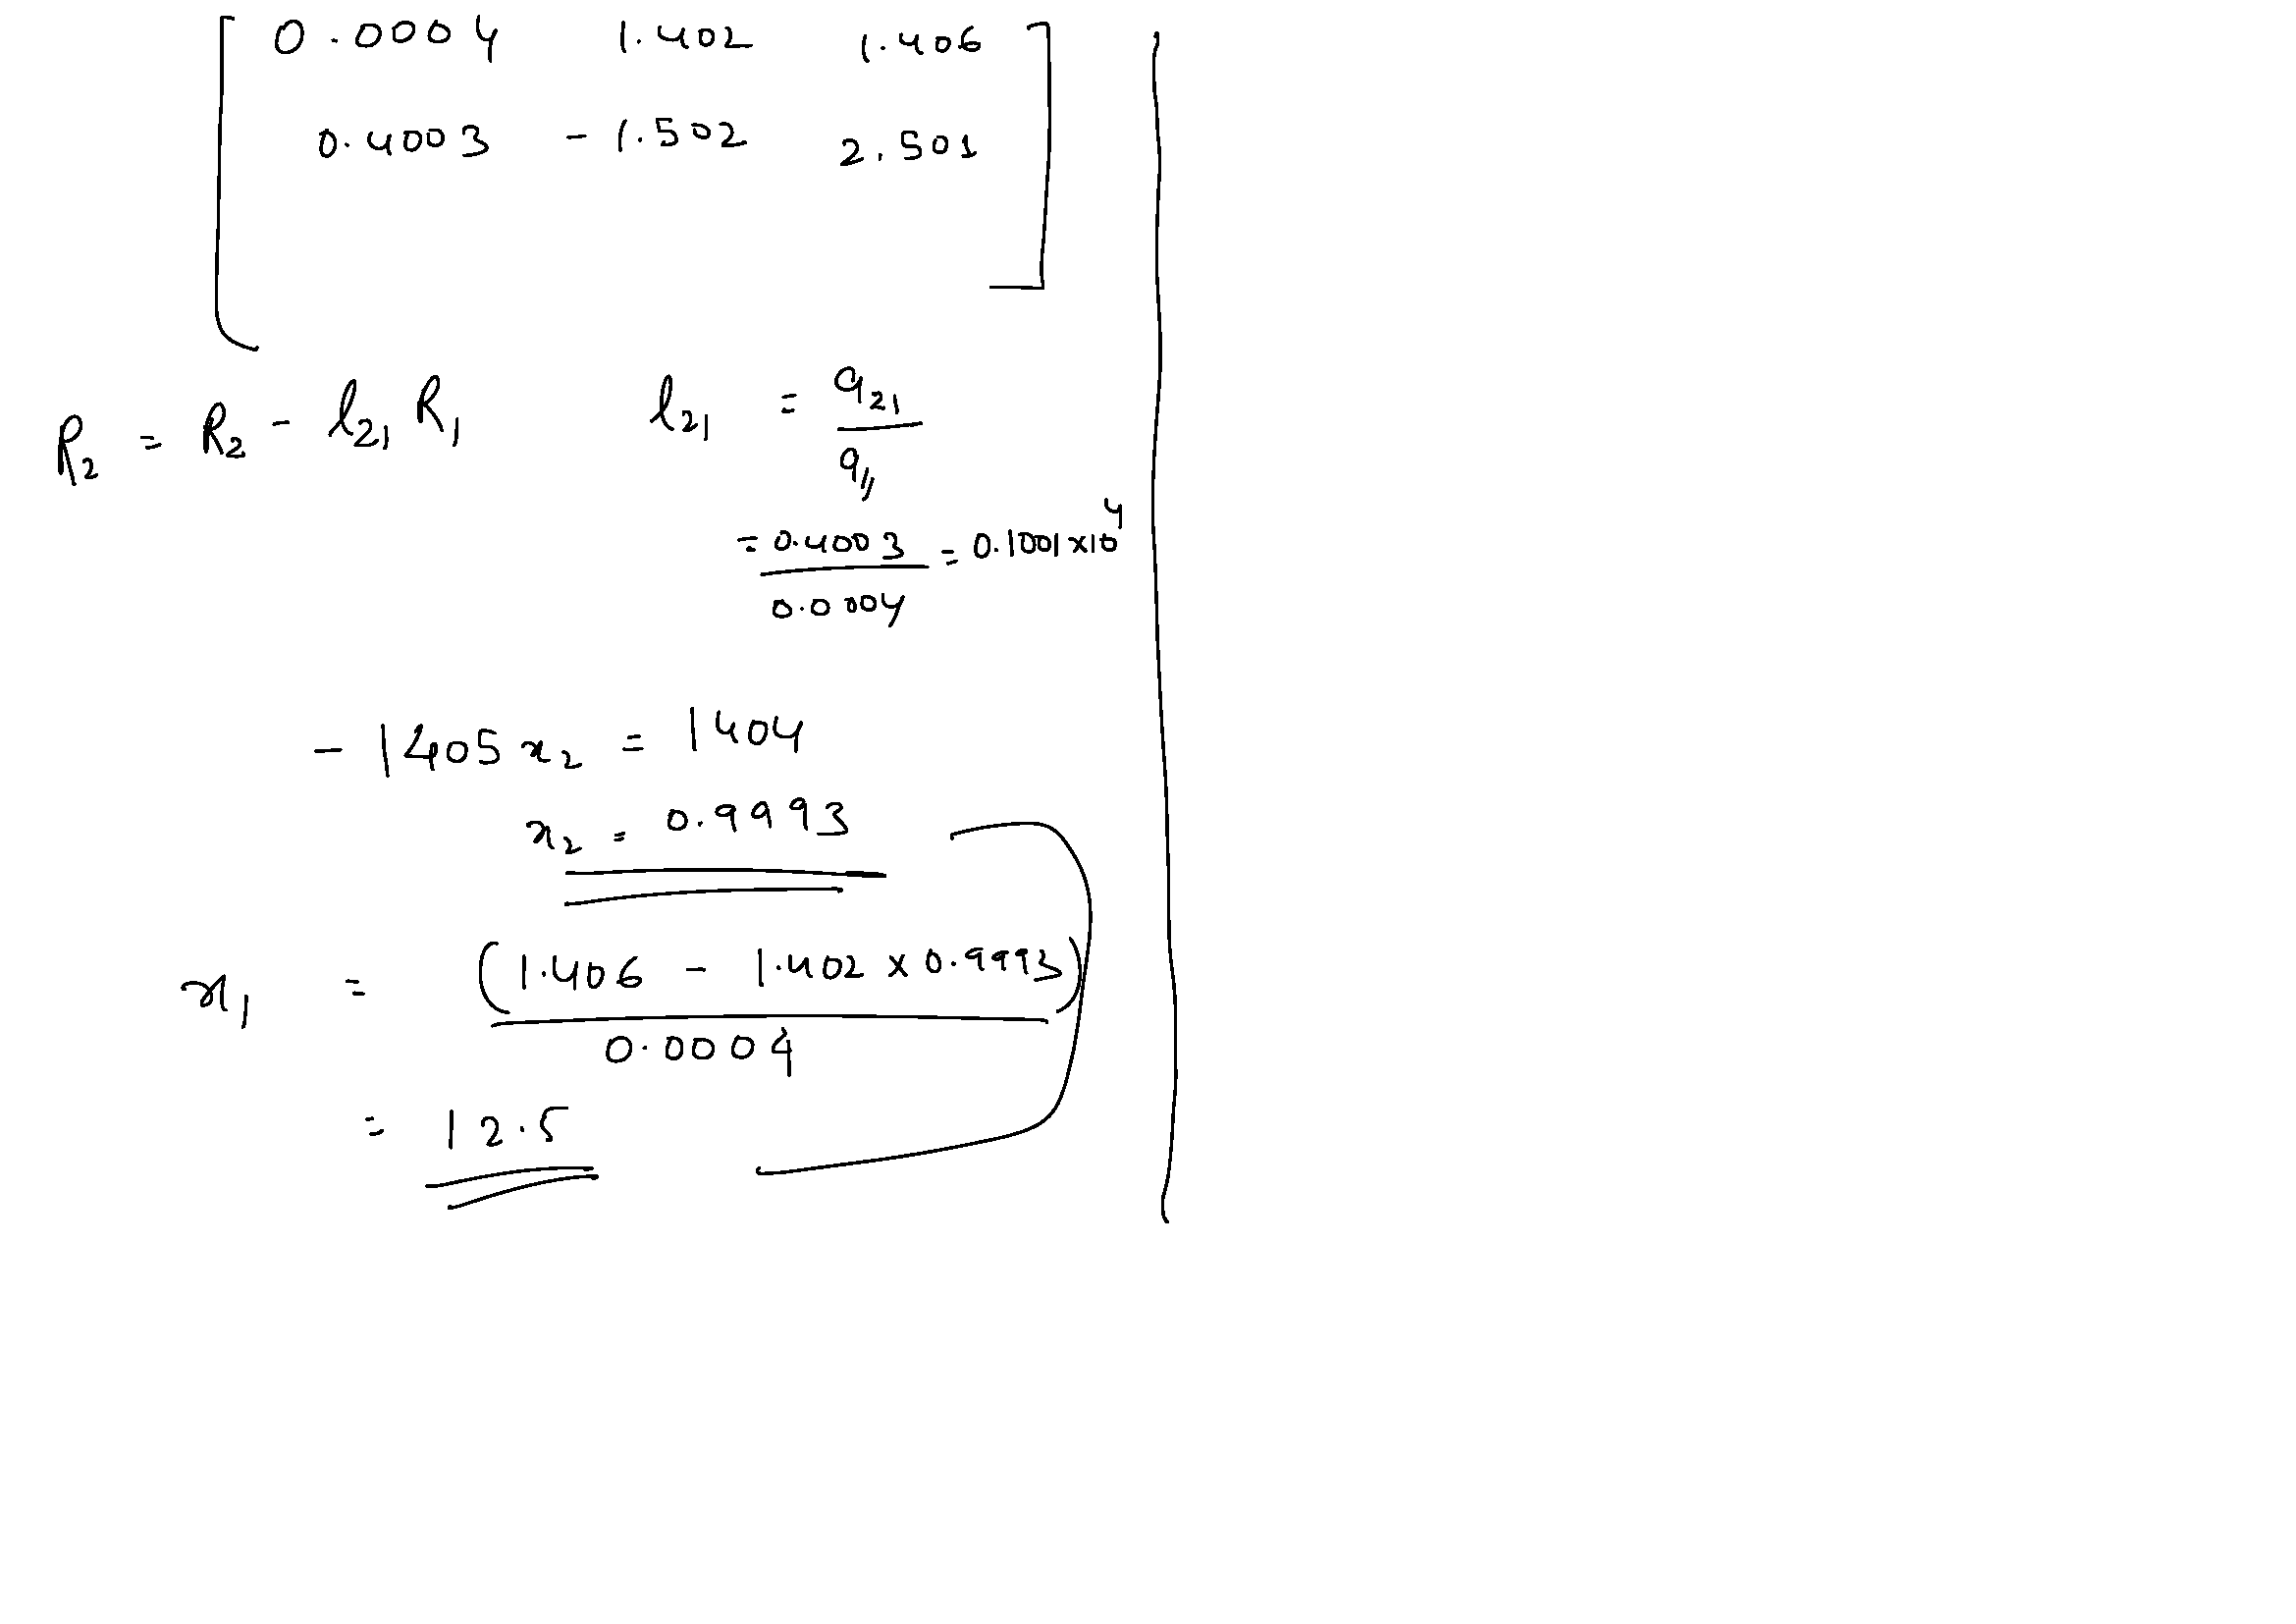 0.0004 1.402 1.406
0.4003 -1.502 2.501
R₂ = R₂ - l₂₁ R₁ l₂₁ = a₂₁ / a₁₁
= 0.4003 / 0.0004 = 0.1001 × 10⁴
- 1405 x₂ = 1404
x₂ = 0.9993
x₁ = (1.406 - 1.402 × 0.9993) / 0.0004
= 12.5